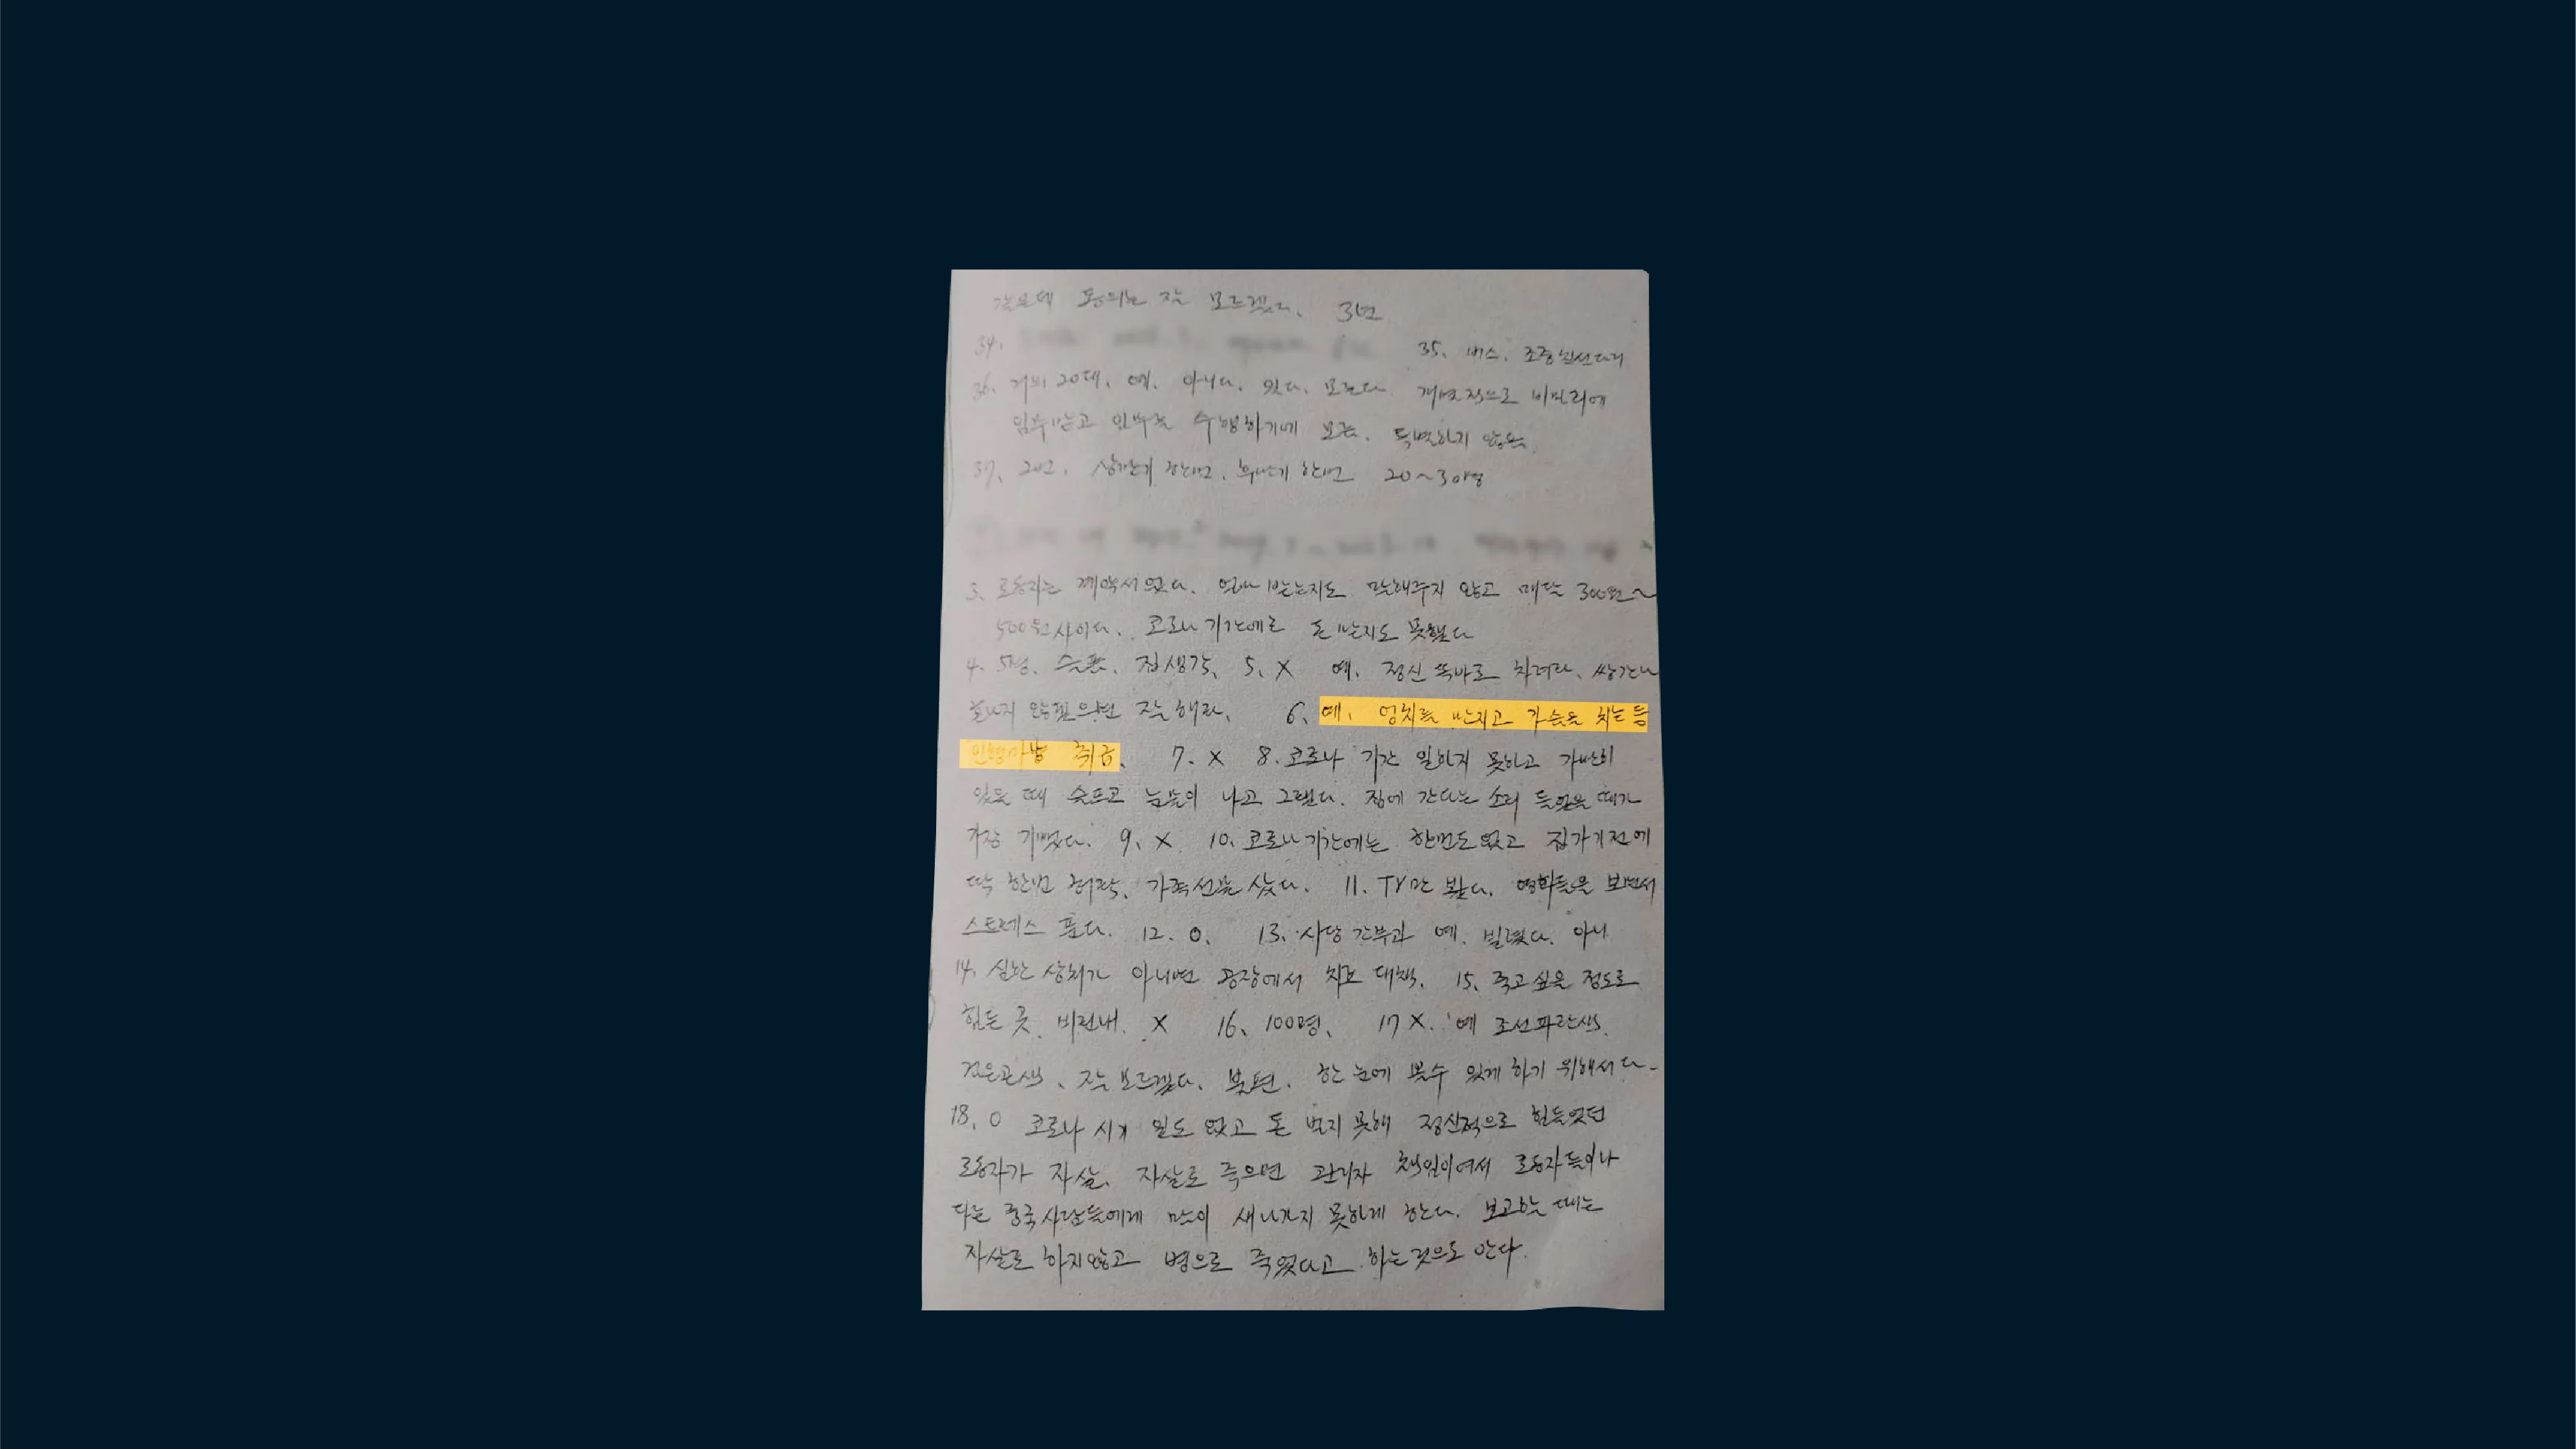 같은데 동의는 잘 모르겠다. 3번
34. 35. 버스. 조중친선다리
36. 거의 20대. 예. 아니다. 있다. 모른다. 개별적으로 비밀리에
임무받고 임무를 수행하기에 모름. 특별하지 않음.
37. 2번. 상반기 한번. 후반기 한번 20~30명
3. 로동자는 계약서 없다. 얼마 받는지도 말해주지 않고 매달 300원~
500원사이다. 코로나 기간에는 돈 받지도 못했다
4. 5명. 슬픔. 집생각. 5. X 예. 정신 똑바로 차려라. 쌍간나
혼나지 않겠으면 잘해라. 6. 예. 엉치를 만지고 가슴을 치는 등
인형마냥 취급. 7. X 8. 코로나 기간 일하지 못하고 가만히
있을 때 슬프고 눈물이 나고 그랬다. 집에 간다는 소리 들었을 때가
가장 기뻤다. 9. X 10. 코로나 기간에는 한번도 없고 집가기전에
딱 한번 허락. 가족선물 샀다. 11. TV만 봤다. 영화들을 보면서
스트레스 푼다. 12. 0. 13. 사당 간부과 예. 빌렸다. 아니
14. 심한 상처가 아니면 공장에서 치료 대책. 15. 죽고싶을 정도로
힘든 곳. 비린내. X 16. 100명. 17 X. 예 조선파란색.
검은곤색. 잘모르겠다. 불편. 한 눈에 볼수 있게 하기 위해서다.
18. 0 코로나 시기 일도 없고 돈 벌지 못해 정신적으로 힘들었던
로동자가 자살. 자살로 죽으면 관리자 책임이여서 로동자들이나
다른 중국사람들에게 말이 새나가지 못하게 한다. 보고하는 때는
자살로 하지않고 병으로 죽었다고 하는것으로 안다.